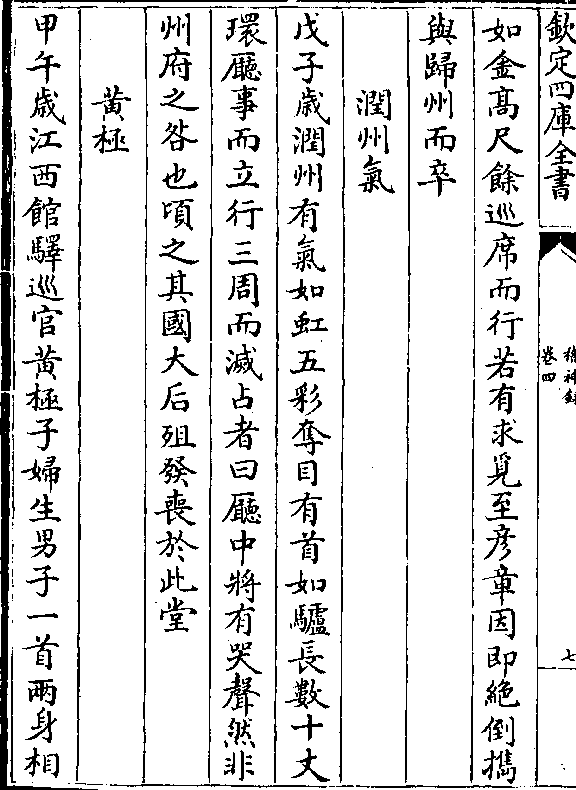 欽定四庫全書
稽神録
卷四
七
如金髙尺餘巡席而行若有求覓至彦章因即絶倒擕
與歸州而卒
潤州氣
戊子歳潤州有氣如虹五彩奪目有首如驢長數十丈
環廳事而立行三周而滅占者曰廳中將有哭聲然非
州府之咎也頃之其國大后殂發喪於此堂
黄極
甲午歳江西館驛巡官黄極子婦生男子一首兩身相